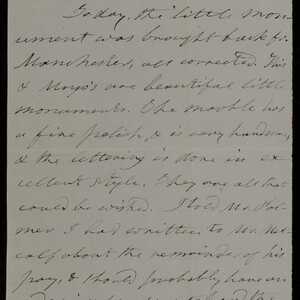 Today, the little mon-
ument was brought back fr.
Manchester, all corrected. This
& Mayo's are beautiful little
monuments. The marble has
a fine polish, & is very handsome,
& the lettering is done in ex-
cellent style. They are all that
could be wished. I told Mr.
mer I had written to Mr. Me-
calf about the remainder of his
pay, & should probably have an